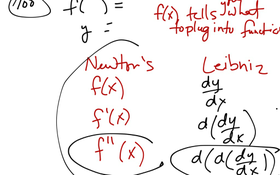 f'( ) =
f(x) tells you what
to plug into functio
y =
Newton's Leibniz
f(x) dy/dx
f'(x) d(dy/dx)
f''(x) d(d(dy/dx))